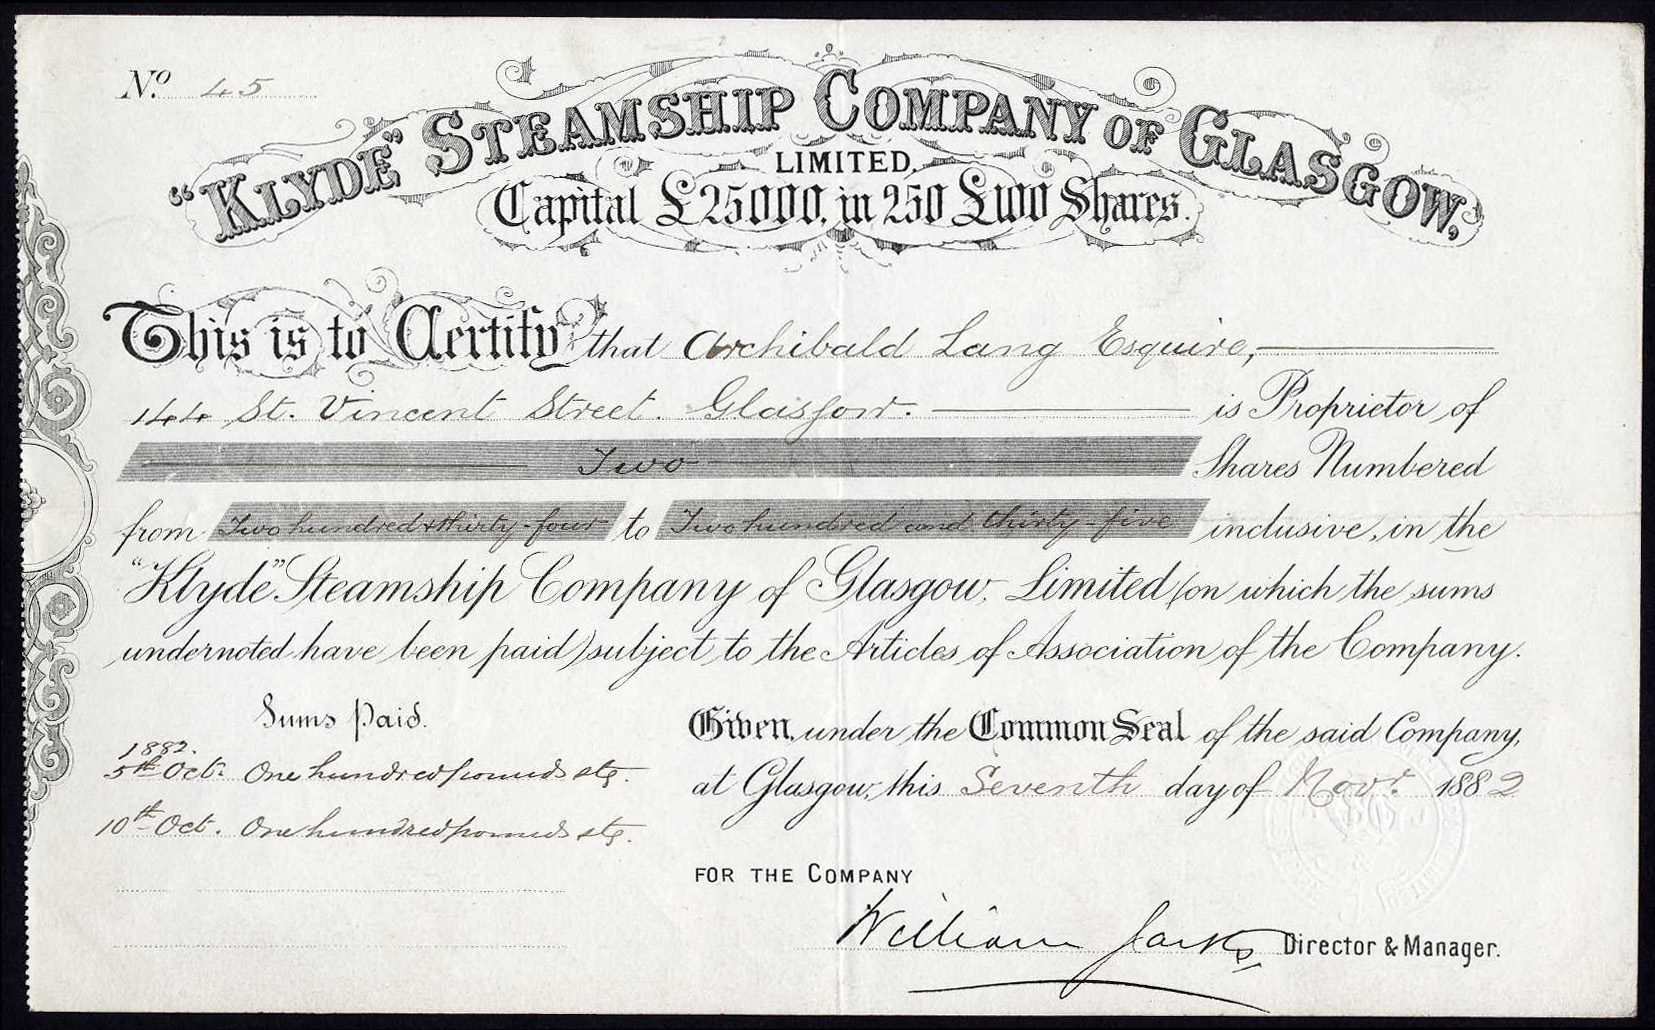 No. 45
"KLYDE" STEAMSHIP COMPANY OF GLASGOW,
LIMITED.
Capital £25000, in 250 £100 Shares.
This is to Certify that Archibald Lang Esquire,
144 St. Vincent Street. Glasgow. is Proprietor of
Two Shares Numbered
from Two hundred & thirty-four to Two hundred and thirty-five inclusive, in the
"Klyde" Steamship Company of Glasgow, Limited (on which the sums
undernoted have been paid) subject to the Articles of Association of the Company.
Sums Paid.
1882.
5th Oct. One hundred pounds stg.
10th Oct. One hundred pounds stg.
Given, under the Common Seal of the said Company,
at Glasgow, this Seventh day of Novr. 1882
FOR THE COMPANY
William Jacks
Director & Manager.